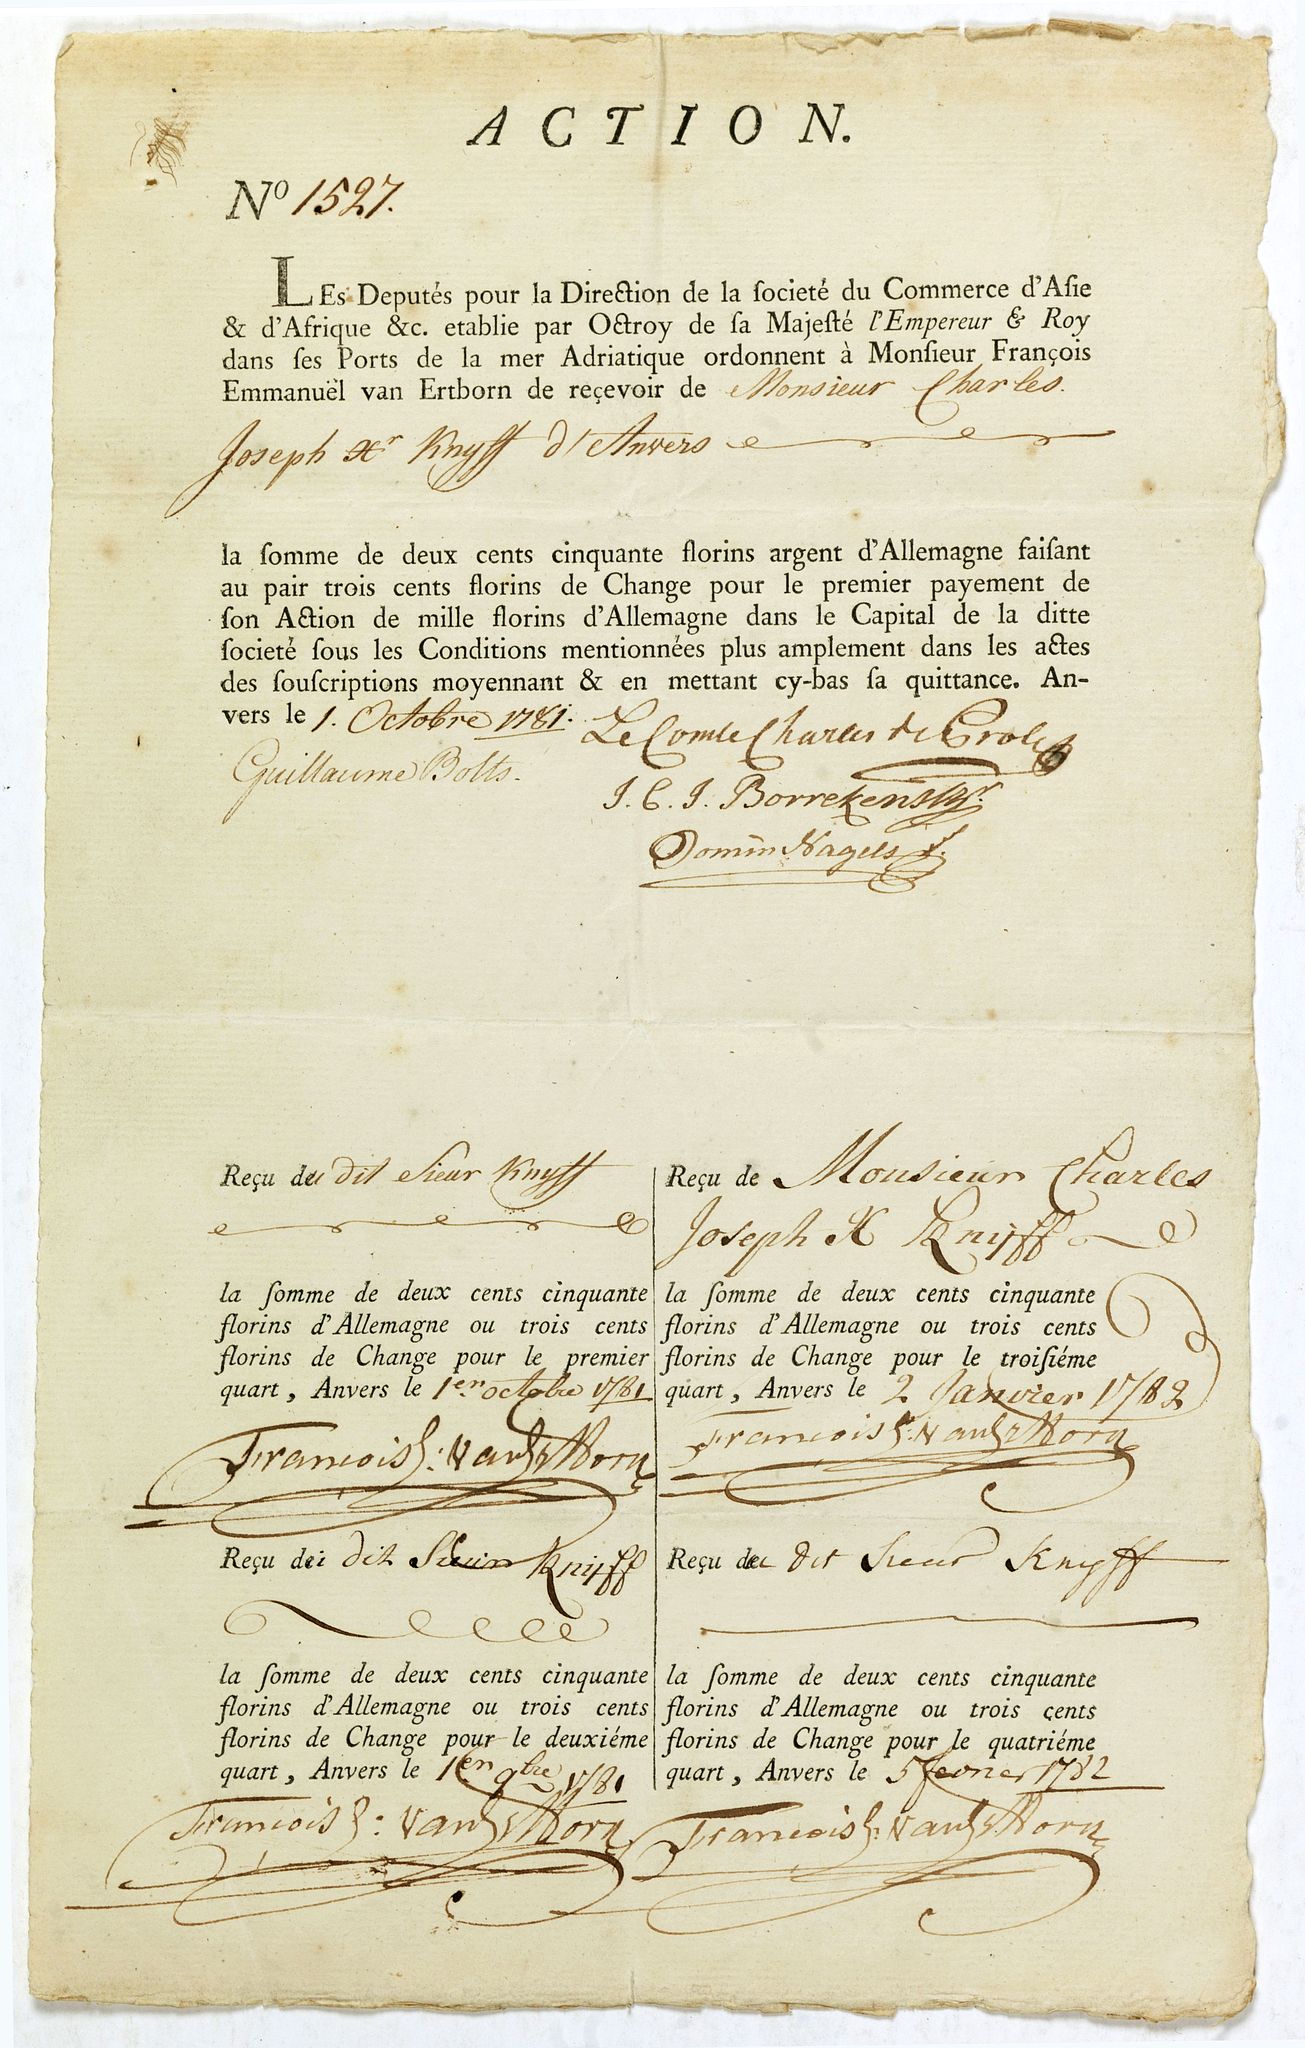 ACTION.
Nº 1527.
LEs Deputés pour la Direction de la ſocieté du Commerce d'Aſie
& d'Afrique &c. etablie par Octroy de ſa Majeſté l'Empereur & Roy
dans ſes Ports de la mer Adriatique ordonnent à Monſieur François
Emmanuël van Ertborn de reçevoir de Monsieur Charles.
Joseph Xr Knyff d'Anvers
la ſomme de deux cents cinquante florins argent d'Allemagne faiſant
au pair trois cents florins de Change pour le premier payement de
ſon Action de mille florins d'Allemagne dans le Capital de la ditte
ſocieté ſous les Conditions mentionnées plus amplement dans les actes
des ſouſcriptions moyennant & en mettant cy-bas ſa quittance. An-
vers le 1. Octobre 1781.
Le Comte Charles de Proli
Guillaume Bolts.
J. C. J. Borrekens
Domin Nagels
Reçu du dit Sieur Knyff
la ſomme de deux cents cinquante
florins d'Allemagne ou trois cents
florins de Change pour le premier
quart, Anvers le 1er octobre 1781
François E: Van Ertborn
Reçu du dit Sieur Knijff
la ſomme de deux cents cinquante
florins d'Allemagne ou trois cents
florins de Change pour le deuxiéme
quart, Anvers le 1er 9bre 1781
François E: Van Ertborn
Reçu de Monsieur Charles
Joseph X Knijff
la ſomme de deux cents cinquante
florins d'Allemagne ou trois cents
florins de Change pour le troiſiéme
quart, Anvers le 2 Janvier 1782
François E: Van Ertborn
Reçu du dit Sieur Knyff
la ſomme de deux cents cinquante
florins d'Allemagne ou trois cents
florins de Change pour le quatriéme
quart, Anvers le 5 fevrier 1782
François E: Van Ertborn